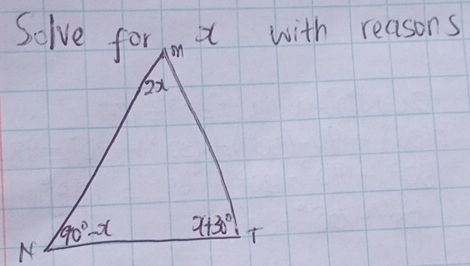 Solve for x with reasons
m
2x
90°-x
x+30°
N
T